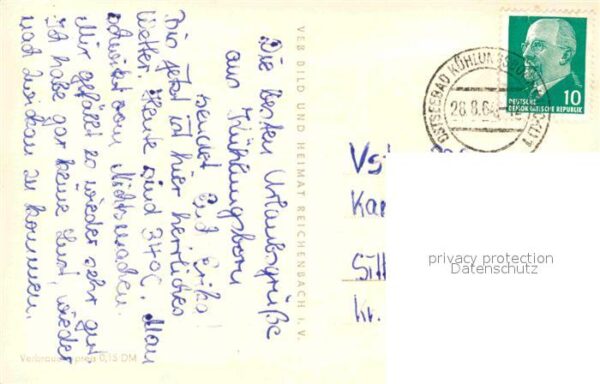 Die besten Urlaubsgrüße
aus Kühlungsborn
sendet Erika!
Bis jetzt ist hier herrliches
Wetter. Heute sind 34°C. Man
schwitzt vom Nichtsmachen.
Mir gefällt es wieder sehr gut.
Ich habe gar keine Lust, wieder
nach Zwickau zu kommen.
VEB BILD UND HEIMAT REICHENBACH I. V.
Verbraucherpreis 0,15 DM
OSTSEEBAD
DEUTSCHE
DEMOKRATISCHE REPUBLIK
10
Kr.
privacy protection
Datenschutz